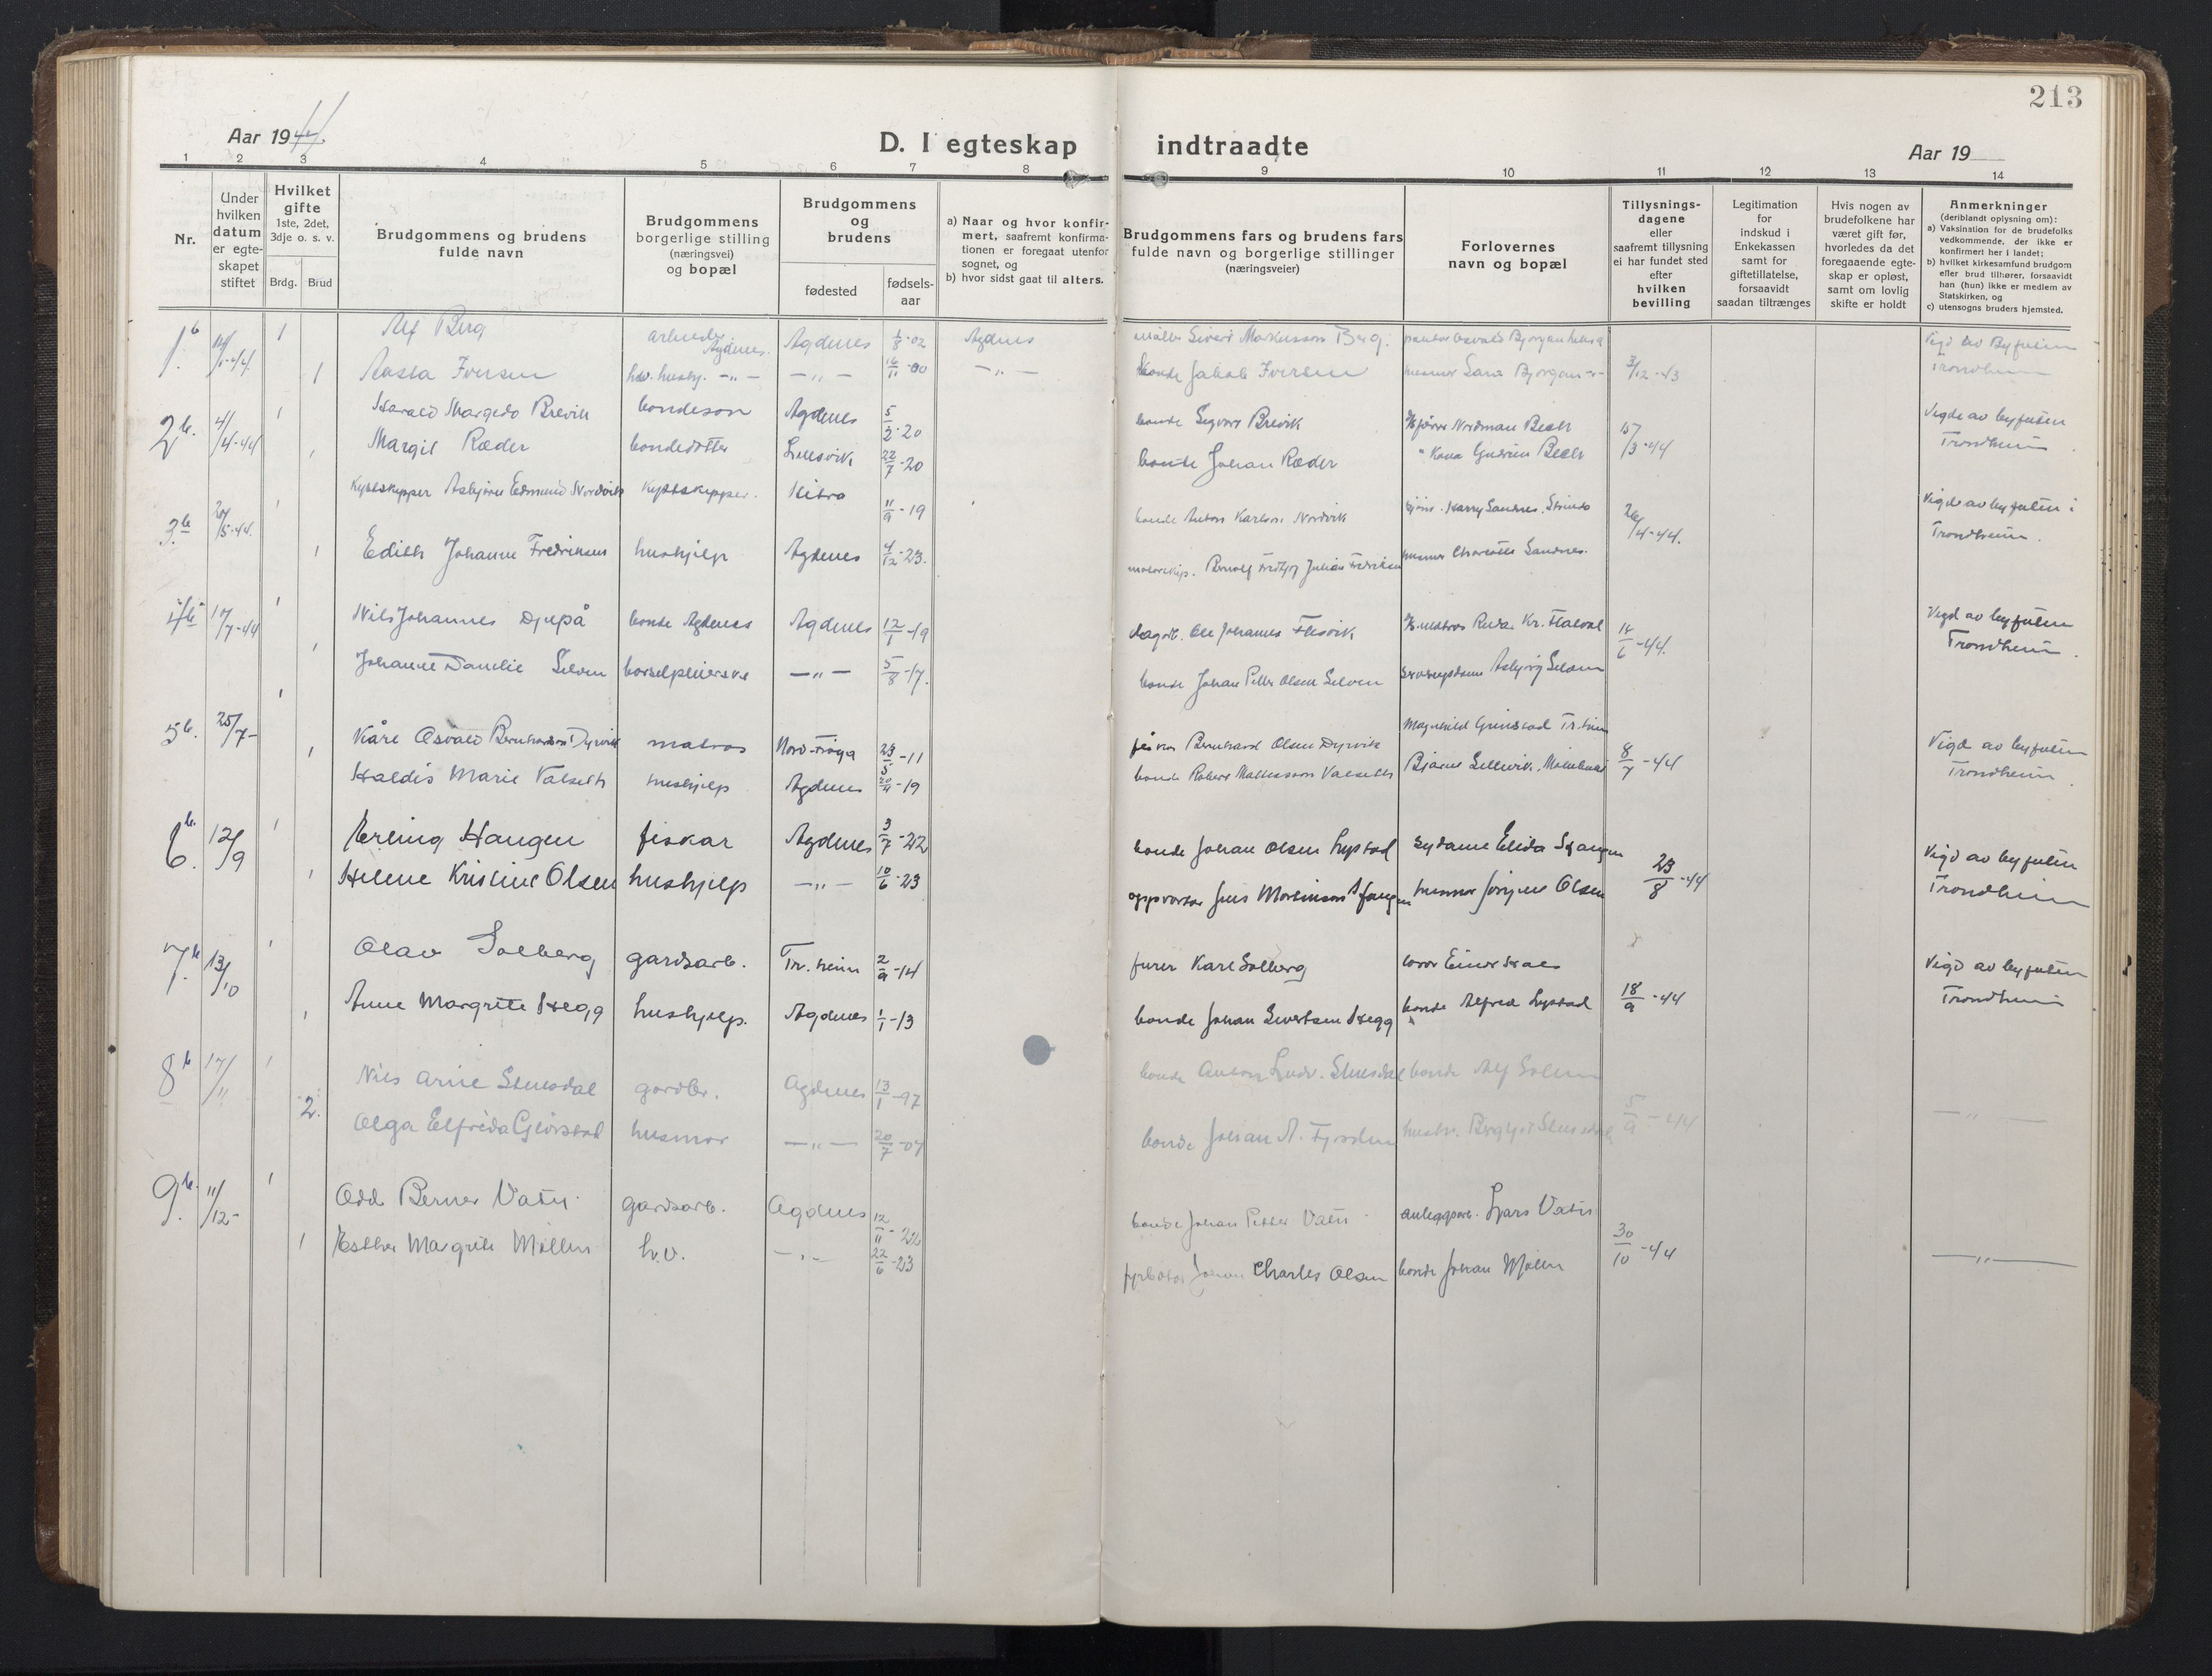 213
Aar 1944.
D. I egteskap indtraadte
Aar 19
1 2 3 4 5 6 7 8 9 10 11 12 13 14
Nr.
Under hvilken datum er egte-skapet stiftet
Hvilket gifte 1ste, 2det, 3dje o. s. v.
Brdg. Brud
Brudgommens og brudens fulde navn
Brudgommens borgerlige stilling (næringsvei) og bopæl
Brudgommens og brudens
fødested
fødsels-aar
a) Naar og hvor konfir-mert, saafremt konfirma-tionen er foregaat utenfor sognet, og
b) hvor sidst gaat til alters.
Brudgommens fars og brudens fars fulde navn og borgerlige stillinger (næringsveier)
Forlovernes navn og bopæl
Tillysnings-dagene eller saafremt tillysning ei har fundet sted efter hvilken bevilling
Legitimation for indskud i Enkekassen samt for giftetillatelse, forsaavidt saadan tiltrænges
Hvis nogen av brudefolkene har været gift før, hvorledes da det foregaaende egte-skap er opløst, samt om lovlig skifte er holdt
Anmerkninger (deriblandt oplysning om):
a) Vaksination for de brudefolks vedkommende, der ikke er konfirmert her i landet;
b) hvilket kirkesamfund brudgom eller brud tilhører, forsaavidt han (hun) ikke er medlem av Statskirken, og
c) utensogns bruders hjemsted.
1 b. 1 Alf Berg arbeider Agdenes. Agdenes 1/8-02 Agdenes Sivert Markusson Berg. Vigd av Byfuten
1 Aasta Iversen hushj. -"- -"- 16/11-00 -"- bonde Jakob Iversen husmor Sara Bjørgan -"- 3/12-43 Trondheim
2 b. 4/4-44 1 Harald Margido Brevik bondeson Agdenes 5/2-20 bonde Sigvart Brevik Nordman Bech 15/3-44 Vigde av byfuten
1 Margit Ræder bondedotter Lensvik 22/7-20 bonde Johan Ræder Kona Gudrun Bech Trondheim
3 b. 20/5-44. 1 Kystskipper Asbjørn Edmund Nordvik kystskipper. Hitra 11/9-19 bonde Anton Karlsen Nordvik Harry Sandnes, Strinda 26/4-44. Vigd av byfuten i
1 Edith Johanne Fredriksen hushjelp Agdenes 4/12-23. Fridtjof Julian Fredriksen husmor Charlotte Sandnes. Trondheim.
4 b. 17/7-44 1 Nils Johannes Djupå bonde Agdenes Agdenes 12/1-19 Ole Johannes Flesvik Reidar Kr. 15/6-44. Vigd av byfuten
1 Johanne Danelie Selven barselpleierske -"- 5/8-17. bonde Johan Petter Olsen Selven Asbjørg Selven Trondheim.
5 b. 25/7- 1 Kåre Osvald Bernhardson Dyrvik matros Nord-Frøya 23/5-11 fiskar Bernhard Olsen Dyrvik Magnhild Grinstad Tr.heim 8/7-44 Vigd av byfuten
1 Haldis Marie Valseth hushjelp Agdenes 20/4-19 bonde Robert Valseth Bjarne Trondheim
6 b. 12/9 1 Erling Haugen fiskar Agdenes 3/7-22 bonde Johan Olsen Lystad sydame Elida 23/8-44 Vigd av byfuten
1 Helene Kristine Olsen hushjelp -"- 10/6-23 Jens husmor Jørgine Olsen Trondheim
7 b. 13/10 1 Olav Solberg gardsarb. Tr.heim 2/9-14 furer Karl Solberg Einar 18/9-44 Vigd av byfuten
1 Anne Margrete Hegg hushjelp. Agdenes 1/1-13 bonde Johan Sivertsen Hegg bonde Alfred Lystad Trondheim
8 b 17/11 1 Nils Arne Stensdal gardbr. Agdenes 13/1-97 bonde Anton Ludv. Stensdal bonde Alf 5/9-44 -"-
2. Olga Elfrida husmor -"- 20/7-07 bonde Johan A. husm. Stensdal
9 b. 11/12- 1 Odd Berner Vatn gardsarb. Agdenes 12/11-22 bonde Johan Petter Vatn anleggsarb. Lars Vatn 30/10-44 -"-
1 Esther Margrete Møllen h.v. -"- 22/6-23 fyrbøter Johan Charles Olsen bonde Johan Mølln